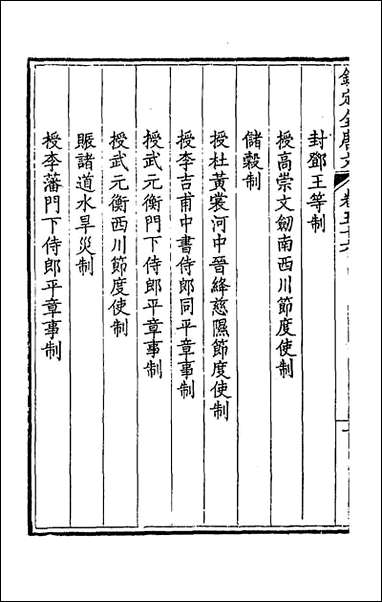 欽定全唐文 卷五十六 一
封鄧王等制
授高崇文劒南西川節度使制
儲穀制
授杜黃裳河中晉絳慈隰節度使制
授李吉甫中書侍郎同平章事制
授武元衡門下侍郎平章事制
授武元衡西川節度使制
賑諸道水旱災制
授李藩門下侍郎平章事制